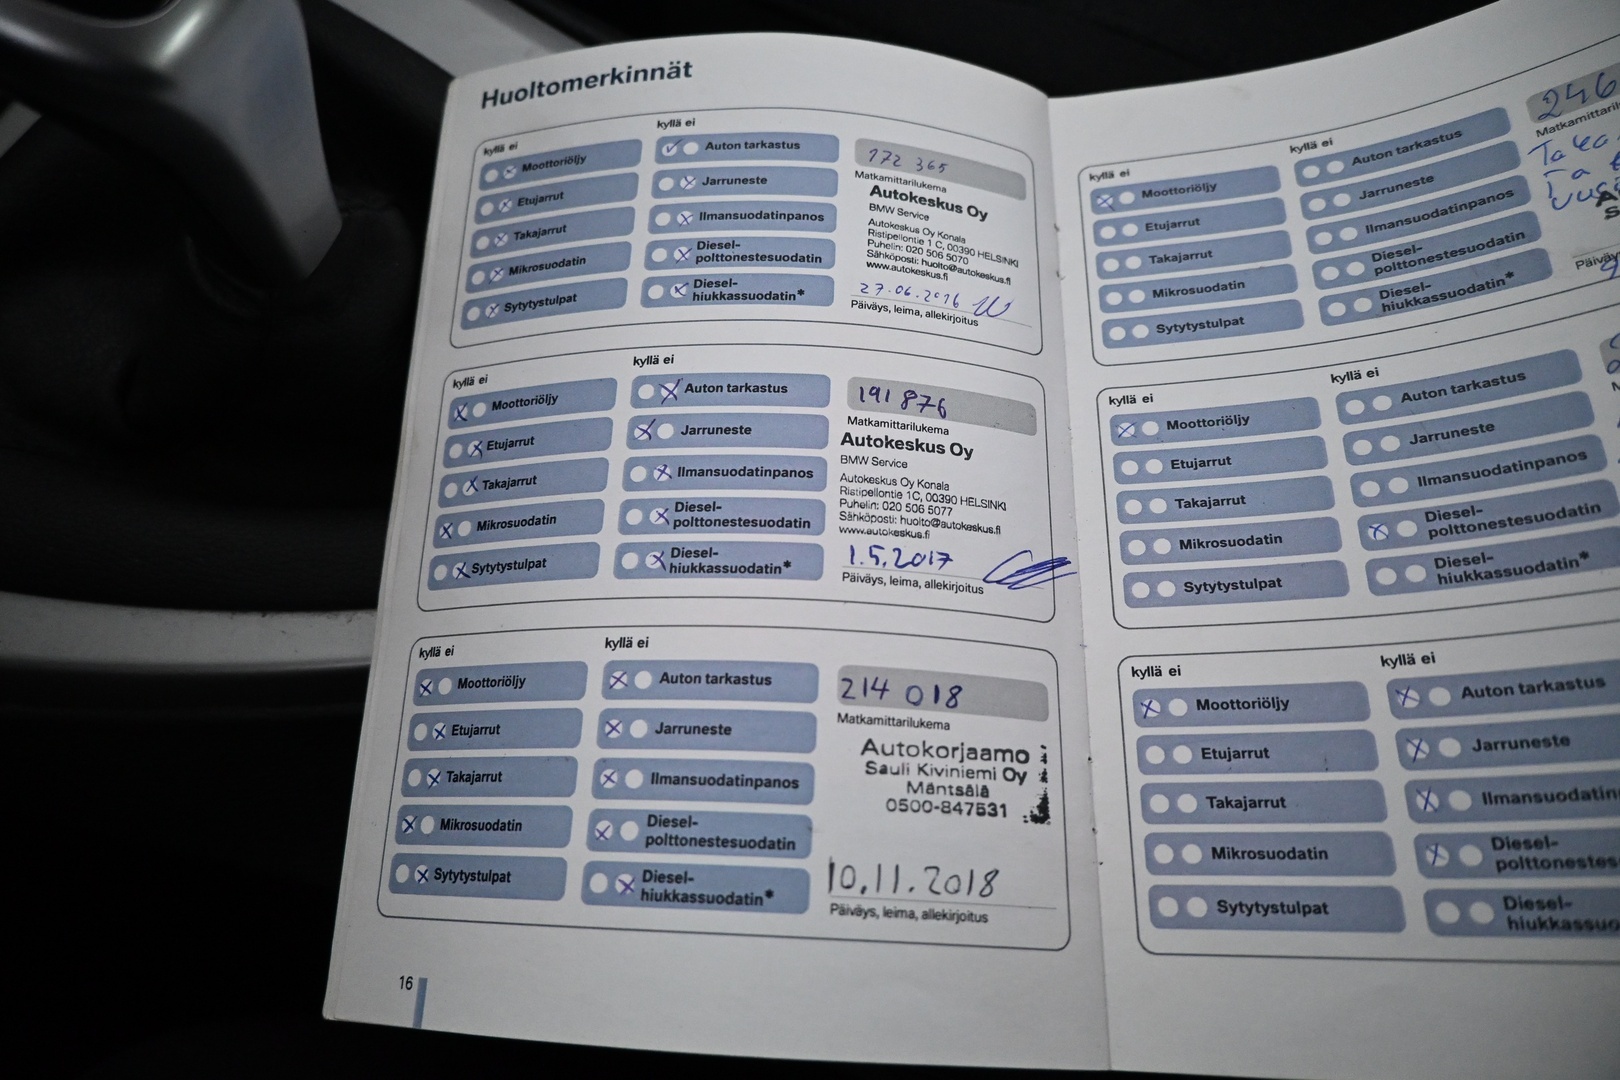 Huoltomerkinnät
kyllä ei
Moottoriöljy
Etujarrut
Takajarrut
Mikrosuodatin
Sytytystulpat
kyllä ei
Auton tarkastus
Jarruneste
Ilmansuodatinpanos
Diesel-
polttonestesuodatin
Diesel-
hiukkassuodatin*
172 365
Matkamittarilukema
Autokeskus Oy
BMW Service
Autokeskus Oy Konala
Ristipellontie 1 C, 00390 HELSINKI
Puhelin: 020 506 5070
Sähköposti: huolto@autokeskus.fi
www.autokeskus.fi
27.06.2016
Päiväys, leima, allekirjoitus
kyllä ei
Moottoriöljy
Etujarrut
Takajarrut
Mikrosuodatin
Sytytystulpat
kyllä ei
Auton tarkastus
Jarruneste
Ilmansuodatinpanos
Diesel-
polttonestesuodatin
Diesel-
hiukkassuodatin*
191 876
Matkamittarilukema
Autokeskus Oy
BMW Service
Autokeskus Oy Konala
Ristipellontie 1C, 00390 HELSINKI
Puhelin: 020 506 5077
Sähköposti: huolto@autokeskus.fi
www.autokeskus.fi
1.5.2017
Päiväys, leima, allekirjoitus
kyllä ei
Moottoriöljy
Etujarrut
Takajarrut
Mikrosuodatin
Sytytystulpat
kyllä ei
Auton tarkastus
Jarruneste
Ilmansuodatinpanos
Diesel-
polttonestesuodatin
Diesel-
hiukkassuodatin*
214 018
Matkamittarilukema
Autokorjaamo
Sauli Kiviniemi Oy
Mäntsälä
0500-847531
10.11.2018
Päiväys, leima, allekirjoitus
16
kyllä ei
Moottoriöljy
Etujarrut
Takajarrut
Mikrosuodatin
Sytytystulpat
kyllä ei
Auton tarkastus
Jarruneste
Ilmansuodatinpanos
Diesel-
polttonestesuodatin
Diesel-
hiukkassuodatin*
246
kyllä ei
Moottoriöljy
Etujarrut
Takajarrut
Mikrosuodatin
Sytytystulpat
kyllä ei
Auton tarkastus
Jarruneste
Ilmansuodatinpanos
Diesel-
polttonestesuodatin
Diesel-
hiukkassuodatin*
kyllä ei
Moottoriöljy
Etujarrut
Takajarrut
Mikrosuodatin
Sytytystulpat
kyllä ei
Auton tarkastus
Jarruneste
Ilmansuodatin
Diesel-
polttonestes
Diesel-
hiukkassuo